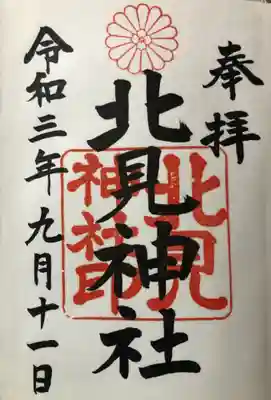 奉拝
北見神社
北見
神社印
令和三年九月十一日